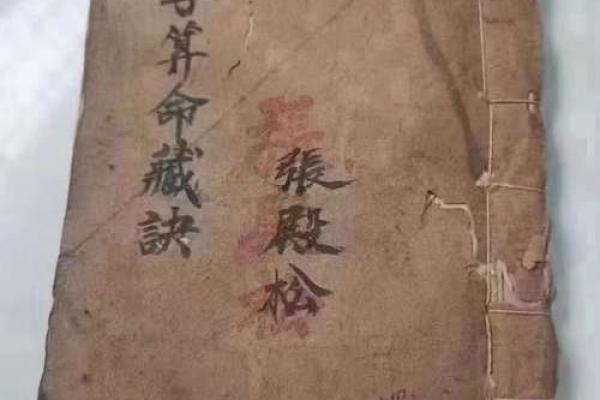 字算命藏訣
張殿松